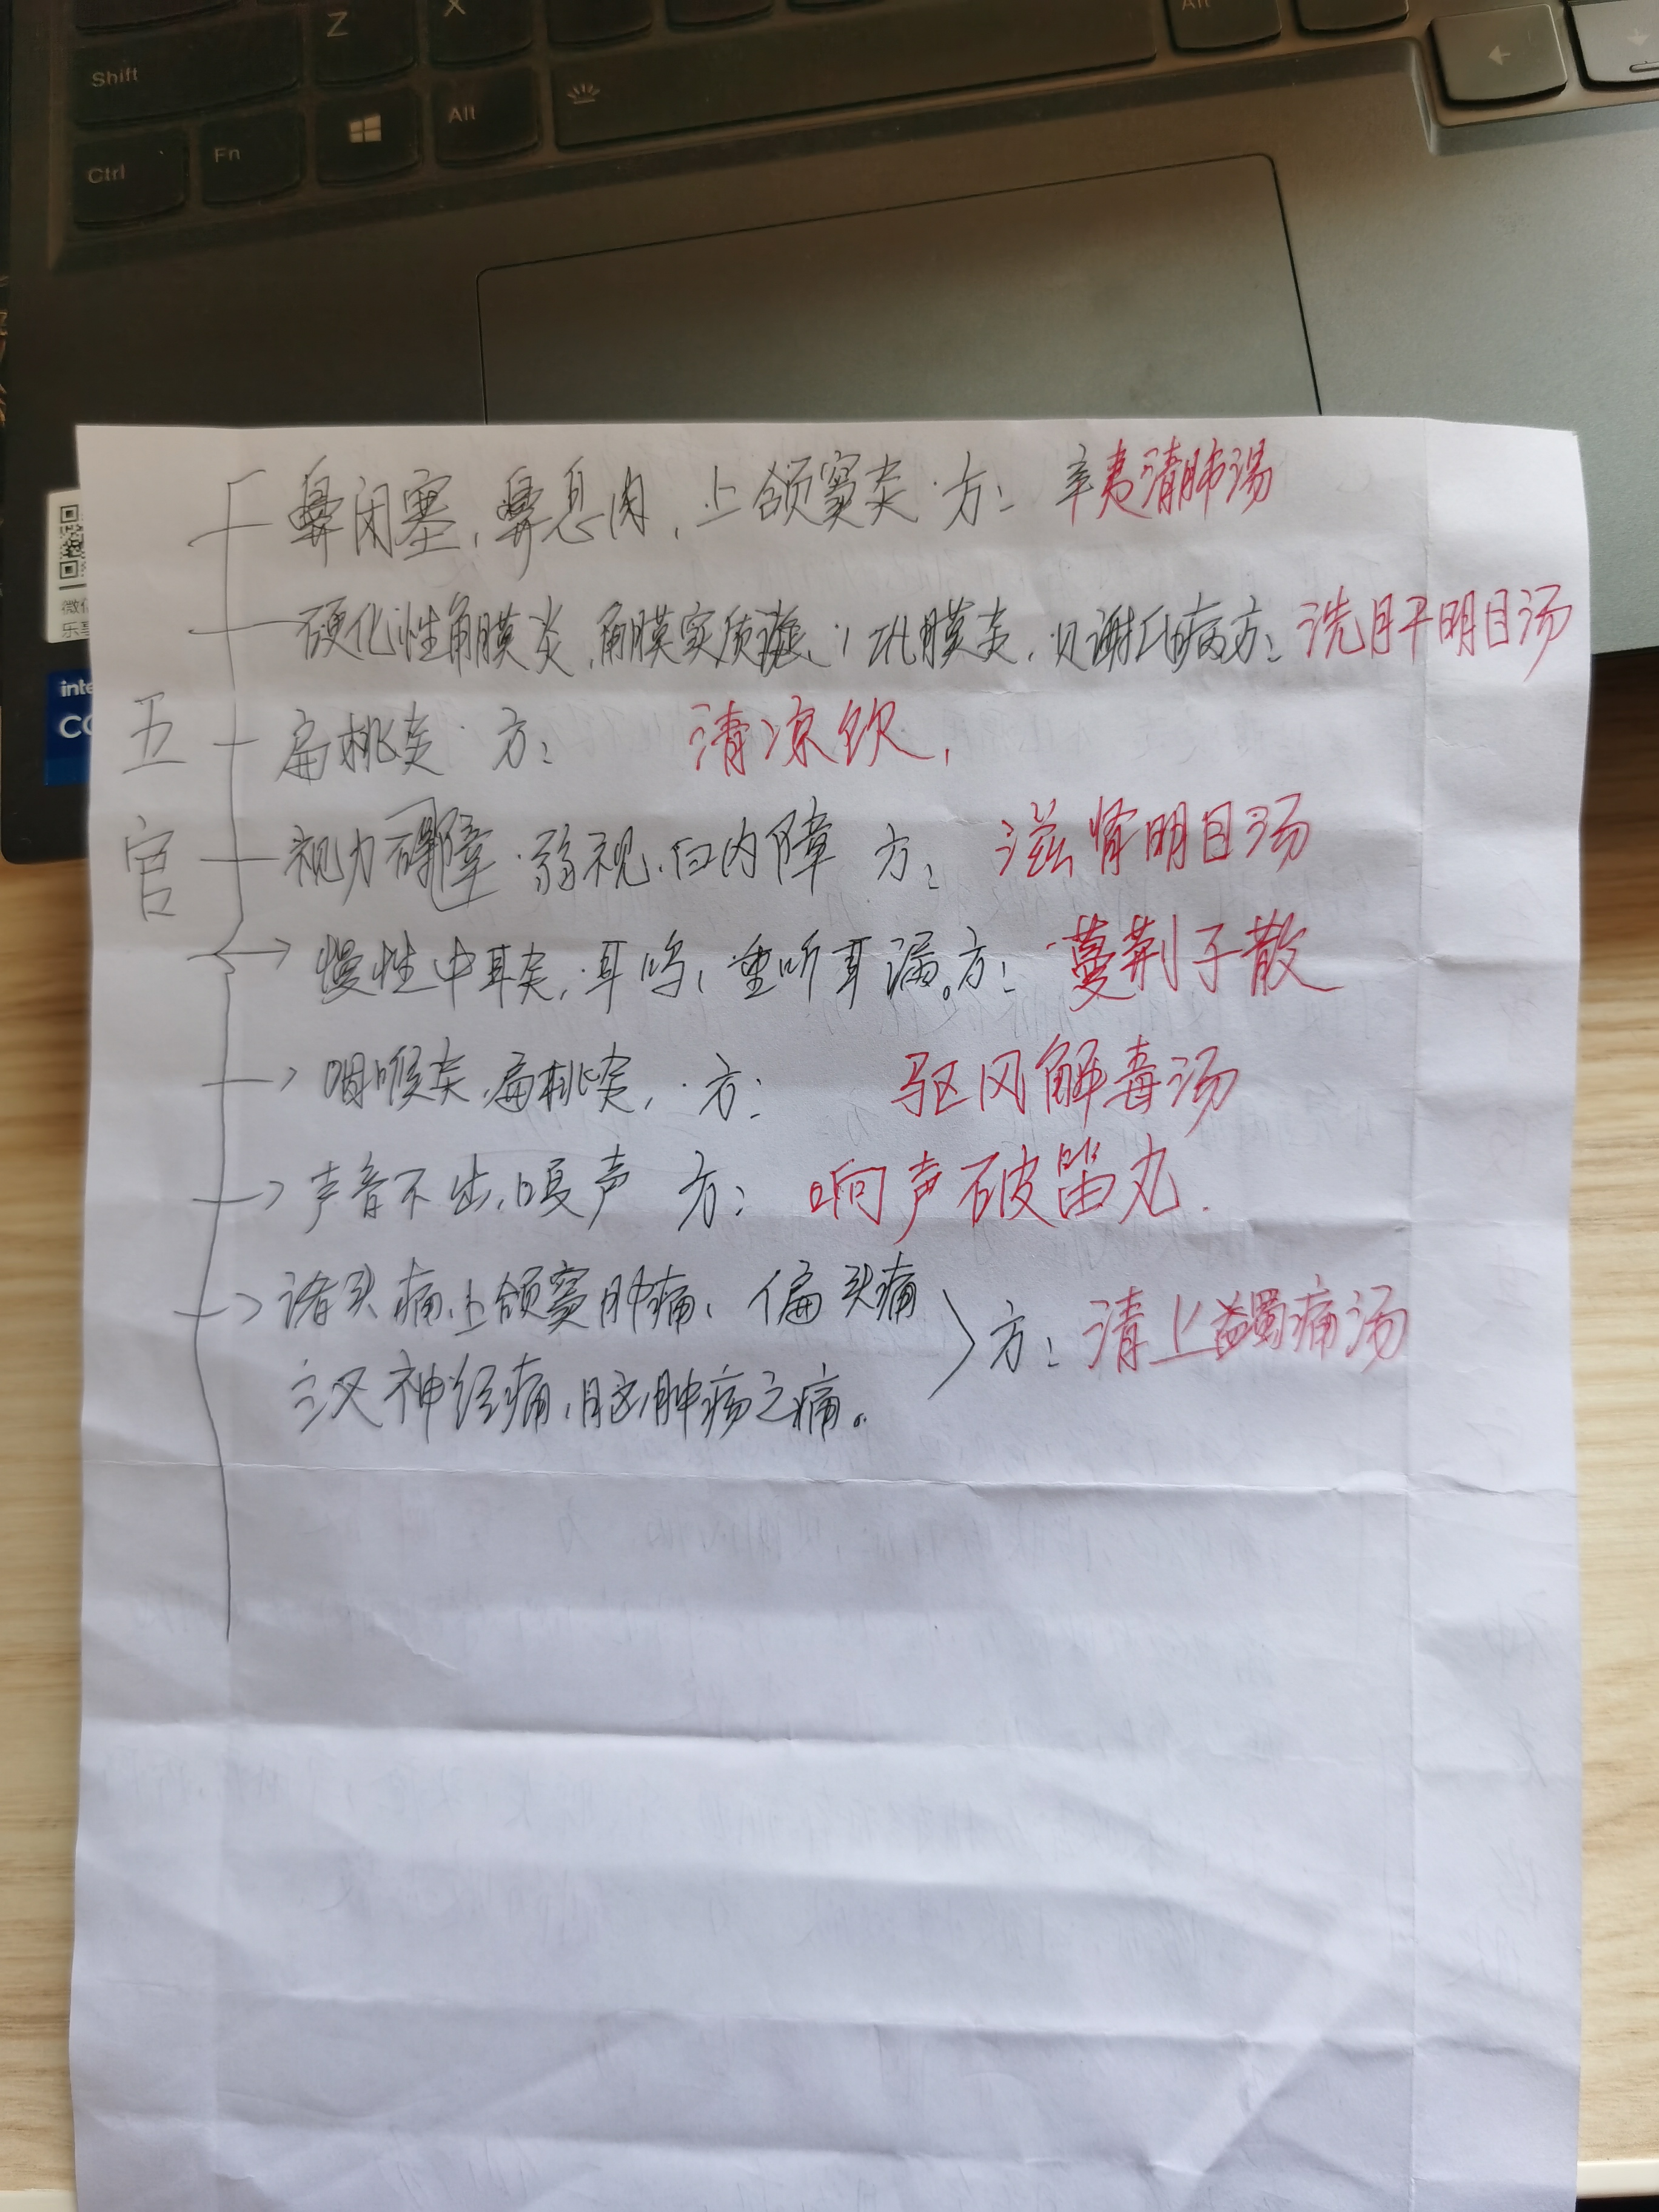 Z
X
Alt
Shift
Alt
Fn
Ctrl
鼻闭塞,鼻息肉,上颌窦炎.方: 辛夷清肺汤
硬化性角膜炎,角膜实质 、 膜炎, 方: 洗肝明目汤
五官
扁桃炎.方: 清凉饮,
视力 障.弱视.白内障 方: 滋肾明目汤
慢性中耳炎,耳鸣,重听耳漏。方: 蔓荆子散
咽喉炎,扁桃炎,.方: 驱风解毒汤
声音不出,嗄声 方: 响声破笛丸.
诸头痛,上颌窦肿痛,偏头痛
三叉神经痛,脑肿疡之痛。
方: 清上蠲痛汤